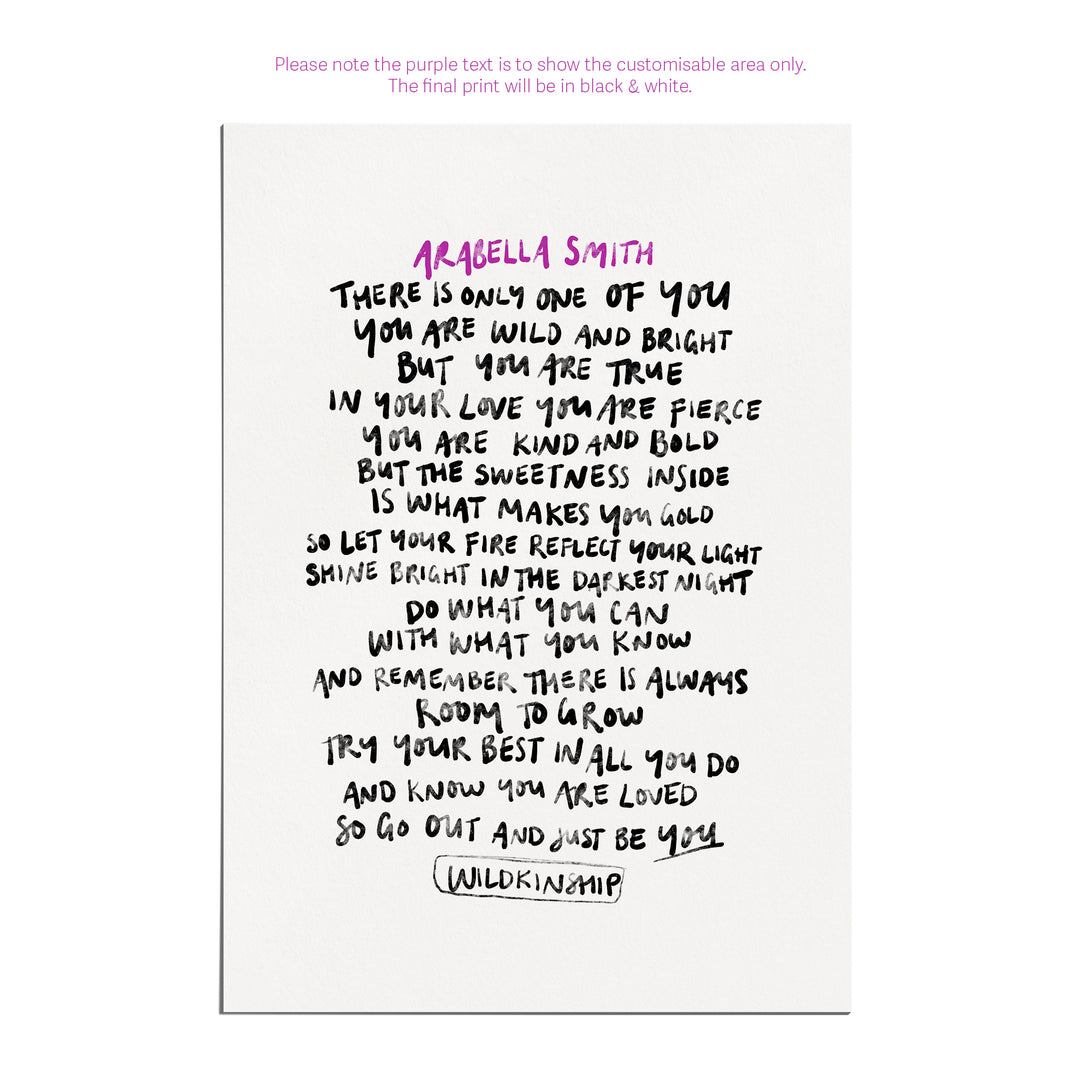 Please note the purple text is to show the customisable area only.
The final print will be in black & white.
ARABELLA SMITH
THERE IS ONLY ONE OF YOU
YOU ARE WILD AND BRIGHT
BUT YOU ARE TRUE
IN YOUR LOVE YOU ARE FIERCE
YOU ARE KIND AND BOLD
BUT THE SWEETNESS INSIDE
IS WHAT MAKES YOU GOLD
SO LET YOUR FIRE REFLECT YOUR LIGHT
SHINE BRIGHT IN THE DARKEST NIGHT
DO WHAT YOU CAN
WITH WHAT YOU KNOW
AND REMEMBER THERE IS ALWAYS
ROOM TO GROW
TRY YOUR BEST IN ALL YOU DO
AND KNOW YOU ARE LOVED
SO GO OUT AND JUST BE YOU
WILDKINSHIP